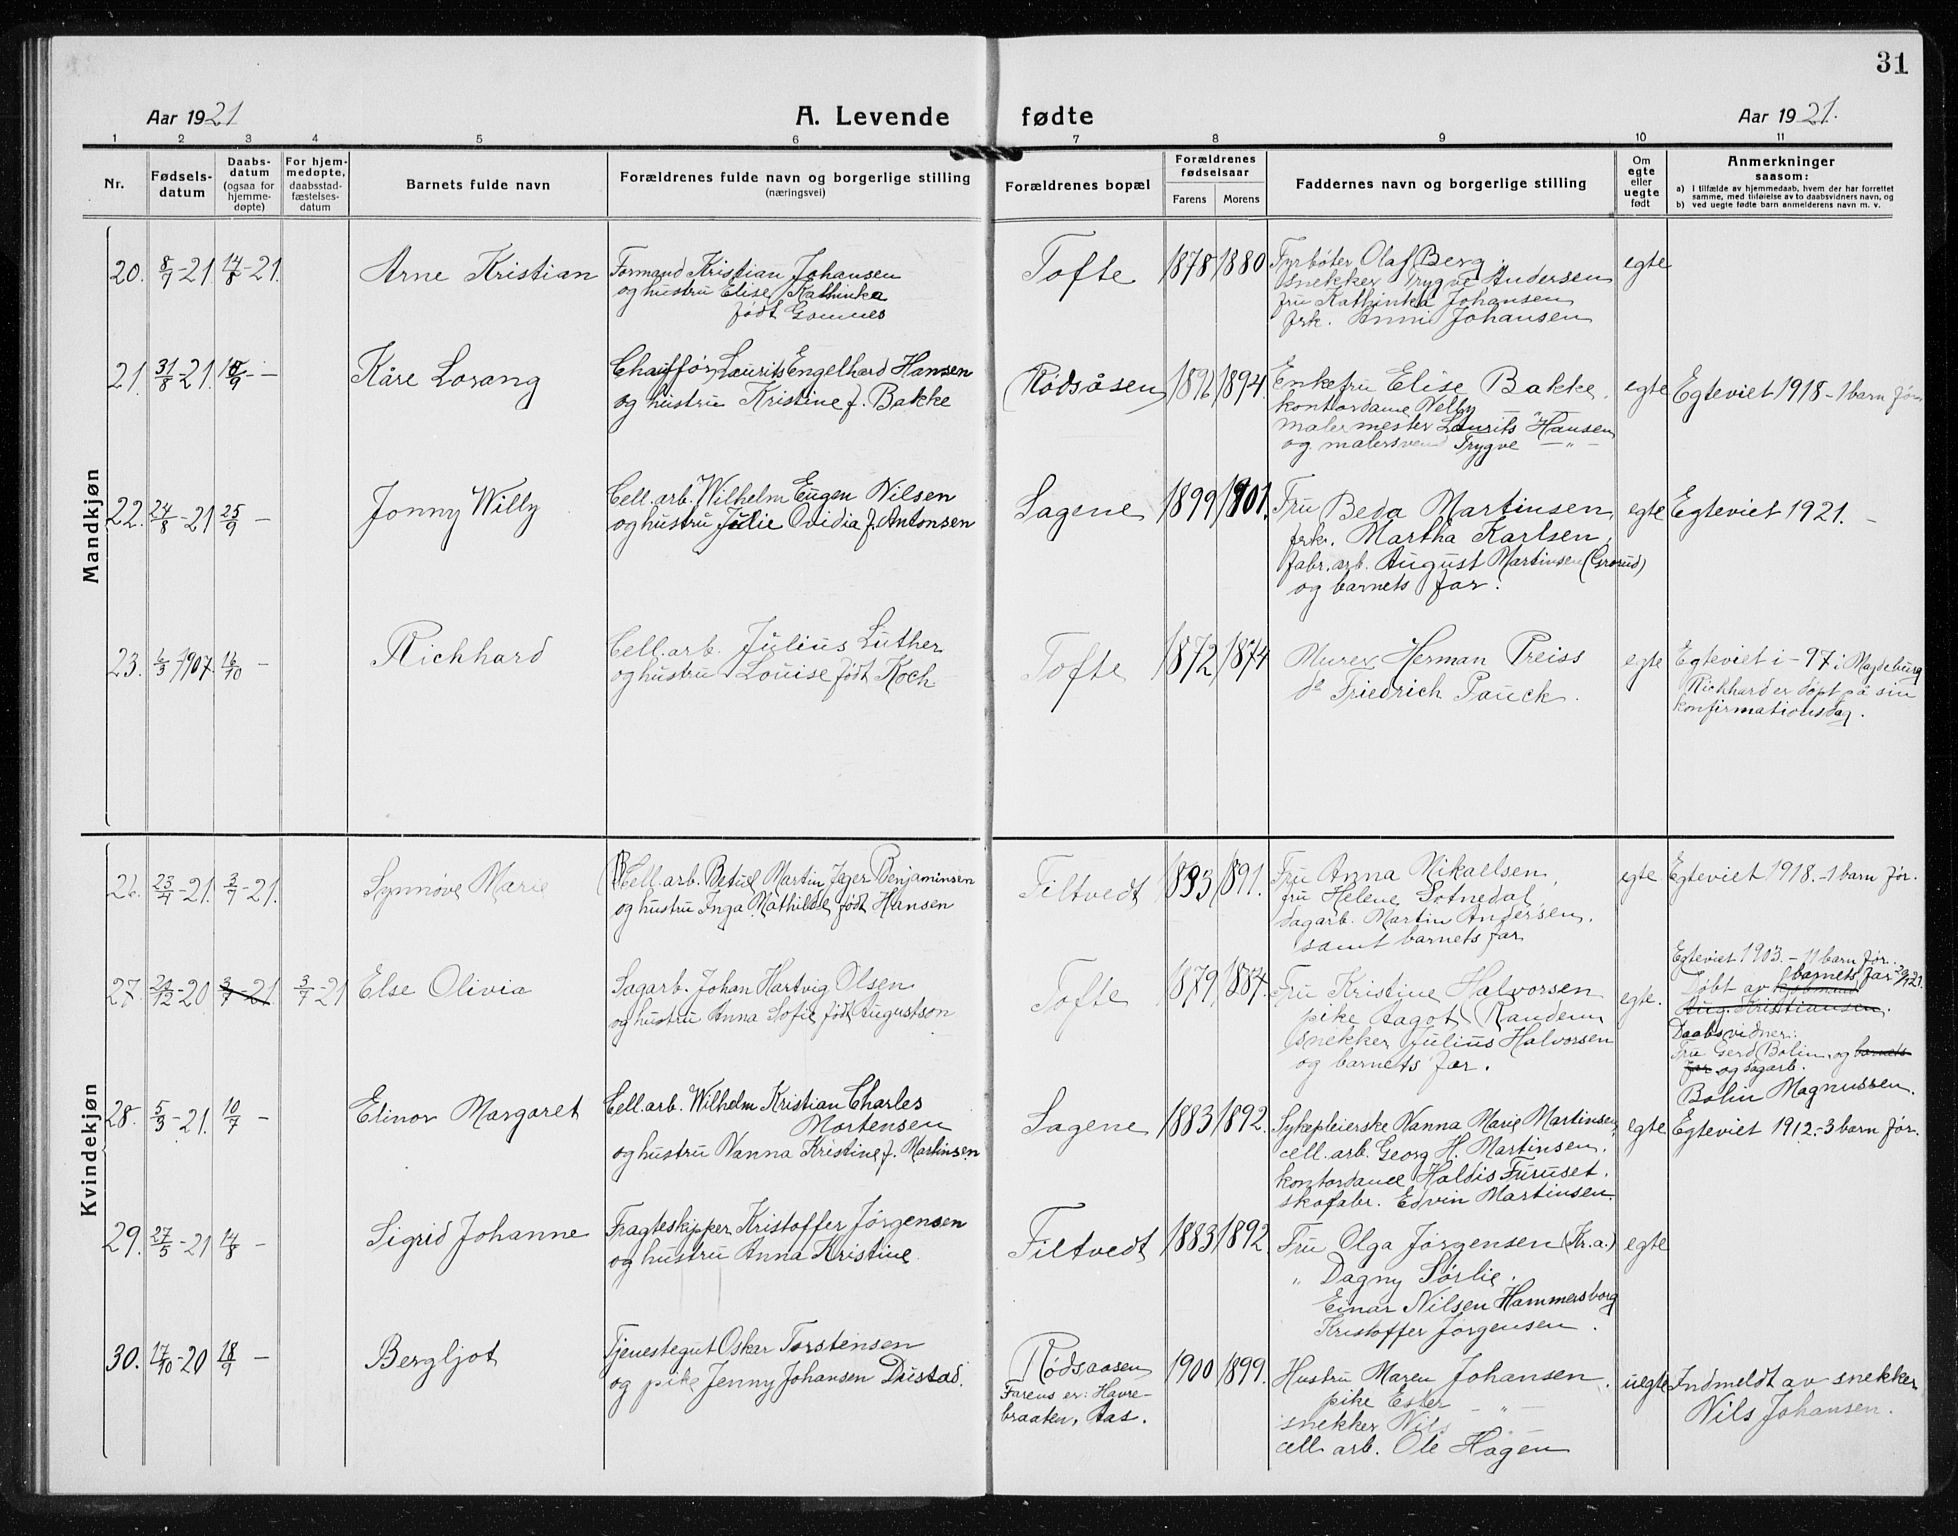 31
Aar 1921
A. Levende fødte
Aar 1921.
1 2 3 4 5 6 7 8 9 10 11
Nr.
Fødsels-
datum
Daabs-
datum
(ogsaa for
hjemme-
døpte)
For hjem-
medøpte,
daabsstad-
fæstelses-
datum
Barnets fulde navn
Forældrenes fulde navn og borgerlige stilling
(næringsvei)
Forældrenes bopæl
Forældrenes
fødselsaar
Farens Morens
Faddernes navn og borgerlige stilling
Om
egte
eller
uegte
født
Anmerkninger
saasom:
a) i tilfælde av hjemmedaab, hvem der har forrettet
samme, med tilføielse av to daabsvidners navn, og
b) ved uegte fødte barn anmelderens navn m. v.
Mandkjøn
20. 8/7-21. 14/8-21. Arne Kristian
Formand Kristian Johansen
og hustru Elise Kathinka
født Gomnes
Tofte 1878 1880
Fyrbøter Olaf Berg.
snekker Trygve Andersen
fru Kathinka Johansen
frk. Anni Johansen
egte
21. 31/8-21. /9 - Kåre Lorang
Chauffør Laurits Engelhard Hansen
og hustru Kristine f. Bakke
Rødsåsen 1894.
Enkefru Elise Bakke.
kontordame Nelly "
malermester Laurits Hansen
og malersvend Trygve -"-
egte Egteviet 1918 - 1 barn før
22. 24/8-21 25/9 - Jonny Willy
Cell.arb. Wilhelm Eugen Nilsen
og hustru Julie Ovidia f. Antonsen
Sagene 1899 1901.
Fru Beda Martinsen,
frk. Martha Karlsen,
fabr.arb. August Martinsen (Grorud)
og barnets far.
egte Egteviet 1921. -
23. 6/3-1907. 16/10 - Richhard
Cell.arb. Julius Luther
og hustru Louise født Koch
Tofte 1872 1874
Murer Herman Preiss
do Friedrich Pauck.
egte Egteviet i -97 i Magdeburg
Richhard er døpt på sin
konfirmationsdag.
Kvindekjøn
26. 23/4-21. 3/7-21. Synnøve Marie
Cell.arb. Betuel Martin Jager Benjaminsen
og hustru Inga Mathilde født Hansen
Filtvedt 1893 1891.
Fru Anna Mikaelsen,
fru Helene Sotnedal,
dagarb. Martin Andersen.
samt barnets far
egte Egteviet 1918. - 1 barn før.
27. 24/12-20 3/7-21 3/7-21 Else Olivia
Sagarb. Johan Hartvig Olsen
og hustru Anna Sofie født Augustson
Tofte 1879 1884.
Fru Kristine Halvorsen
pike Aagot Randem
snekker Julius Halvorsen
og barnets far.
egte.
Egteviet 1903. - 11 barn før.
Døbt av kjøbmand barnets far
Aug. Kristiansen.
Daabsvidner:
Fru Gerd Bolin og barnets
far og sagarb.
Bolin Magnussen.
28. 5/3-21. 10/7 - Elinor Margaret
Cell.arb. Wilhelm Kristian Charles
Mortensen
og hustru Nanna Kristine f. Martinsen
Sagene 1883 1892.
Sykepleierske Nanna Marie Martinsen,
cell.arb. Georg H. Martinsen.
kontordame Haldis Furuset.
skofabr. Edvin Martinsen.
egte Egteviet 1912. - 3 barn før.
29. 27/5-21 14/8 - Sigrid Johanne
Fragteskipper Kristoffer Jørgensen
og hustru Anna Kristine.
Filtvedt 1883 1892.
Fru Olga Jørgensen (Kr.a.)
" Dagny Sørlie.
Einar Nilsen Hammersborg
Kristoffer Jørgensen.
egte
30. 17/10-20 18/9 - Bergljot
Tjenestegut Oskar Torstensen
og pike Jenny Johansen Dustad.
Rødsaasen
Farens er: Havre-
braaten, Aas.
1900 1899.
Hustru Maren Johansen.
pike Ester -"-
snekker Nils
cell. arb. Ole Hagen
uegte Indmeldt av snekker
Nils Johansen.